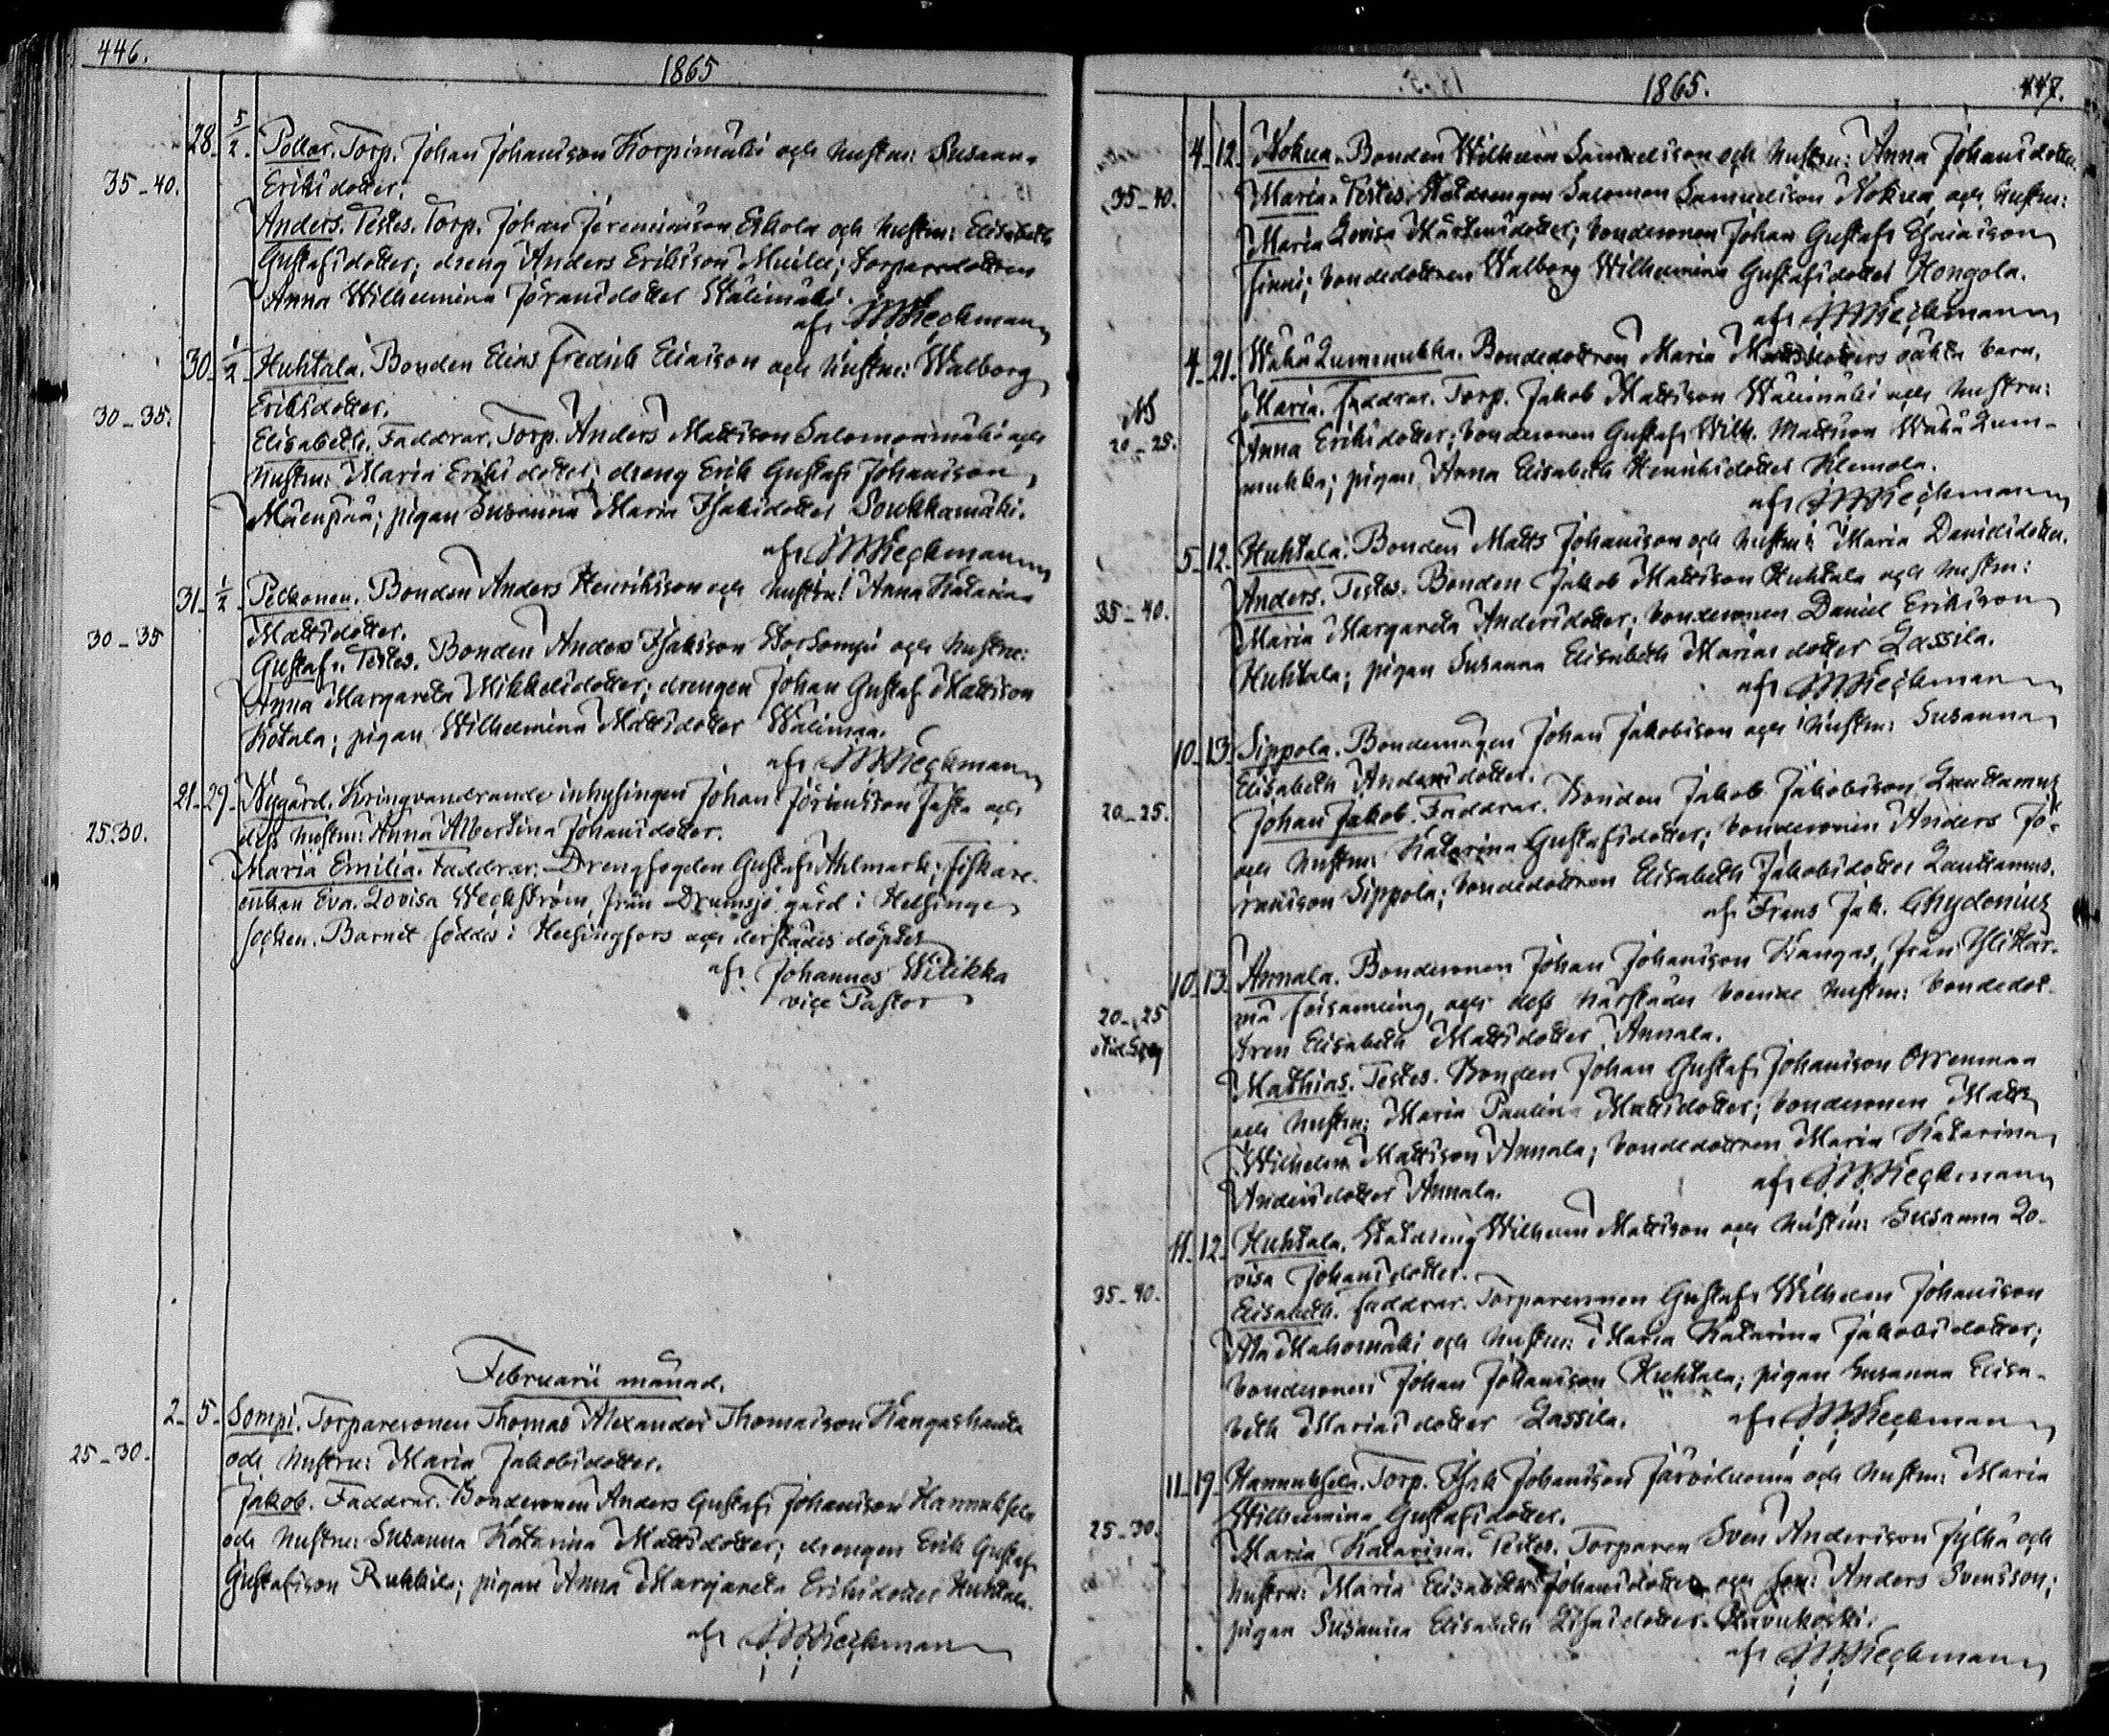 446.
1865
28. 5/2. Pollar. Torp. Johan Johansson Korpimäki och hustru: Susanna
35-40. Eriksdotter.
Anders. Testes. Torp. Johan Jeremiasson Eskola och hustru: Elisabeth
Gustafsdotter; dreng Anders Eriksson; torparedottren
Anna Wilhelmina Jöransdotter Wälimäki.
af
30. 1/2 Huhtala. Bonden Elias Fredrik Eliasson och hustru: Walborg
30-35. Eriksdotter.
Elisabeth. Faddrar. Torp. Anders Mattsson Salomonmäki och
hustru: Maria Eriksdotter; dreng Erik Gustaf Johansson
Mäenpää; pigan Susanna Maria Isaksdotter Soukkamäki.
af
31. 1/2 Peltonen. Bonden Anders Henriksson och hustru: Anna Katarina
30-35 Mattsdotter.
Gustaf. Testes. Bonden Anders Isaksson och hustru:
Anna Margareta Mikkelsdotter; drengen Johan Gustaf Mattsson
Kotala; pigan Wilhelmina Mattsdotter Walimaa.
af
21. 29. Nygård. Kringvandrande inhysingen Johan och
25.30. dess hustru: Anna Albertina Johansdotter.
Maria Emilia. Faddrar. Drengfogden Gustaf Ahlmark; fiskare-
enkan Eva Lovisa Weckström, från Drumsjö gård i Helsinge
socken. Barnet föddes i Helsingfors och derstädes döptes
af Johannes Wilikka
vice Pastor
Februarii månad.
2. 5. Sompi. Torparesonen Thomas Alexander Thomasson Kangashauta
25-30. och hustru: Maria Jakobsdotter.
Jakob. Faddrar. Bondesonen Anders Gustaf Johansson Hannuksela
och hustru: Susanna Katarina Mattsdotter; drengen Erik Gustaf
Gustafsson Rukkila; pigan Anna Margareta Eriksdotter Huhtala.
af
1865. 447.
4. 12. Bonden Wilhelm Samuelsson och hustru: Anna Johansdotter.
35-40. Maria. Testes. Salomon Samuelsson och hustru:
Maria Lovisa Mårtensdotter; bondesonen Johan Gustaf Esaiasson
Finni; bondedottren Walborg Wilhelmina Gustafsdotter Hongola.
af
4. 21. Wähä Lummukka. Bondedottren Maria Mattsdotters oäkta barn.
Maria. Faddrar. Torp. Jakob Mattsson Wälimäki och hustru:
20-25. Anna Eriksdotter; bondesonen Gustaf Wilh. Mattsson Wähä Lum-
mukka; pigan Anna Elisabeth Henriksdotter Klemola.
af
5. 12. Huhtala. Bonden Matts Johansson och hustru: Maria Danielsdotter.
35-40. Anders. Testes. Bonden Jakob Mattsson Huhtala och hustru:
Maria Margareta Andersdotter; bondesonen Daniel Eriksson
Huhtala; pigan Susanna Elisabeth Mariasdotter Lassila.
af
10. 13. Sippola. Bondemågen Johan Jakobsson och hustru: Susanna
Elisabeth Andersdotter.
20-25. Johan Jakob. Faddrar. Bonden Jakob Jakobsson Lauttamus
och hustru: Katarina Gustafsdotter; bondesonen Anders Jö-
ransson Sippola; bondedottren Elisabeth Jakobsdotter Lauttamus.
af Frans Jak. Chydenius
10. 13. Annala. Bondesonen Johan Johansson Kangas, från Ylihär-
20-25 mä församling, och dess härstädes boende hustru: bondedot-
tren Elisabeth Mattsdotter Annala.
Mathias. Testes. Bonden Johan Gustaf Johansson Orrenmaa
och hustru: Maria Paulina Mattsdotter; bondesonen Matts
Wilhelm Mattsson Annala; bondedottren Maria Katarina
Andersdotter Annala. af
11. 12. Huhtala. Statdreng Wilhelm Mattsson och hustru: Susanna Lo-
visa Johansdotter.
35-40. Elisabeth. Faddrar. Torparesonen Gustaf Wilhelm Johansson
Ala Mahomäki och hustru: Maria Katarina Jakobsdotter;
bondesonen Johan Johansson Huhtala; pigan Susanna Elisa-
beth Mariasdotter Lassila. af
11. 19. Hannuksela. Torp. Isak Johansson Järviluoma och hustru: Maria
Wilhelmina Gustafsdotter.
25-30. Maria Katarina. Testes. Torparen Sven Andersson Jylhä och
hustru: Maria Elisabeth Johansdotter och son: Anders Svensson;
pigan Susanna Elisabeth
af